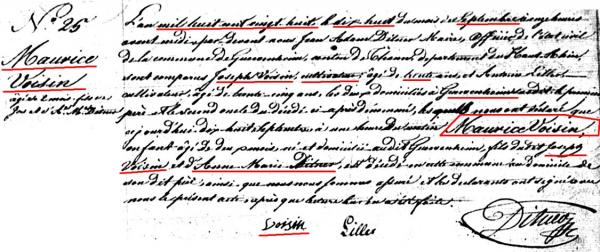 N.° 25
Maurice
Voisin
âgé de 2 mois fils de
Jos et A. M. Ditner
L'an mil huit cent vingt huit, le dix huit du mois de Septembre à heures
avant midi, par devant nous Jean Ditner Maire, Officier de l'état civil
de la commune de Guevenheim, canton de Thann, departement du Haut Rhin,
sont comparus Joseph Voisin, cultivateur, âgé de trente ans, et Antoine
cultivateur, âgé de trente cinq ans, les deux domiciliés à Guevenheim le premier
père et le second oncle du décédé ci après dénommé, lesquels nous ont déclaré que
aujourd'hui dix huit Septembre à une heure du matin Maurice Voisin
enfant âgé de deux mois, né et domicilié audit Guevenheim, fils du dit Joseph
Voisin et d'Anne Marie Ditner, est décédé en cette commune au domicile de
son dit père, ainsi que nous nous sommes assuré et les déclarants ont signé avec
nous le présent acte, après que lecture leur en a été faite.
Voisin Lilles Ditner